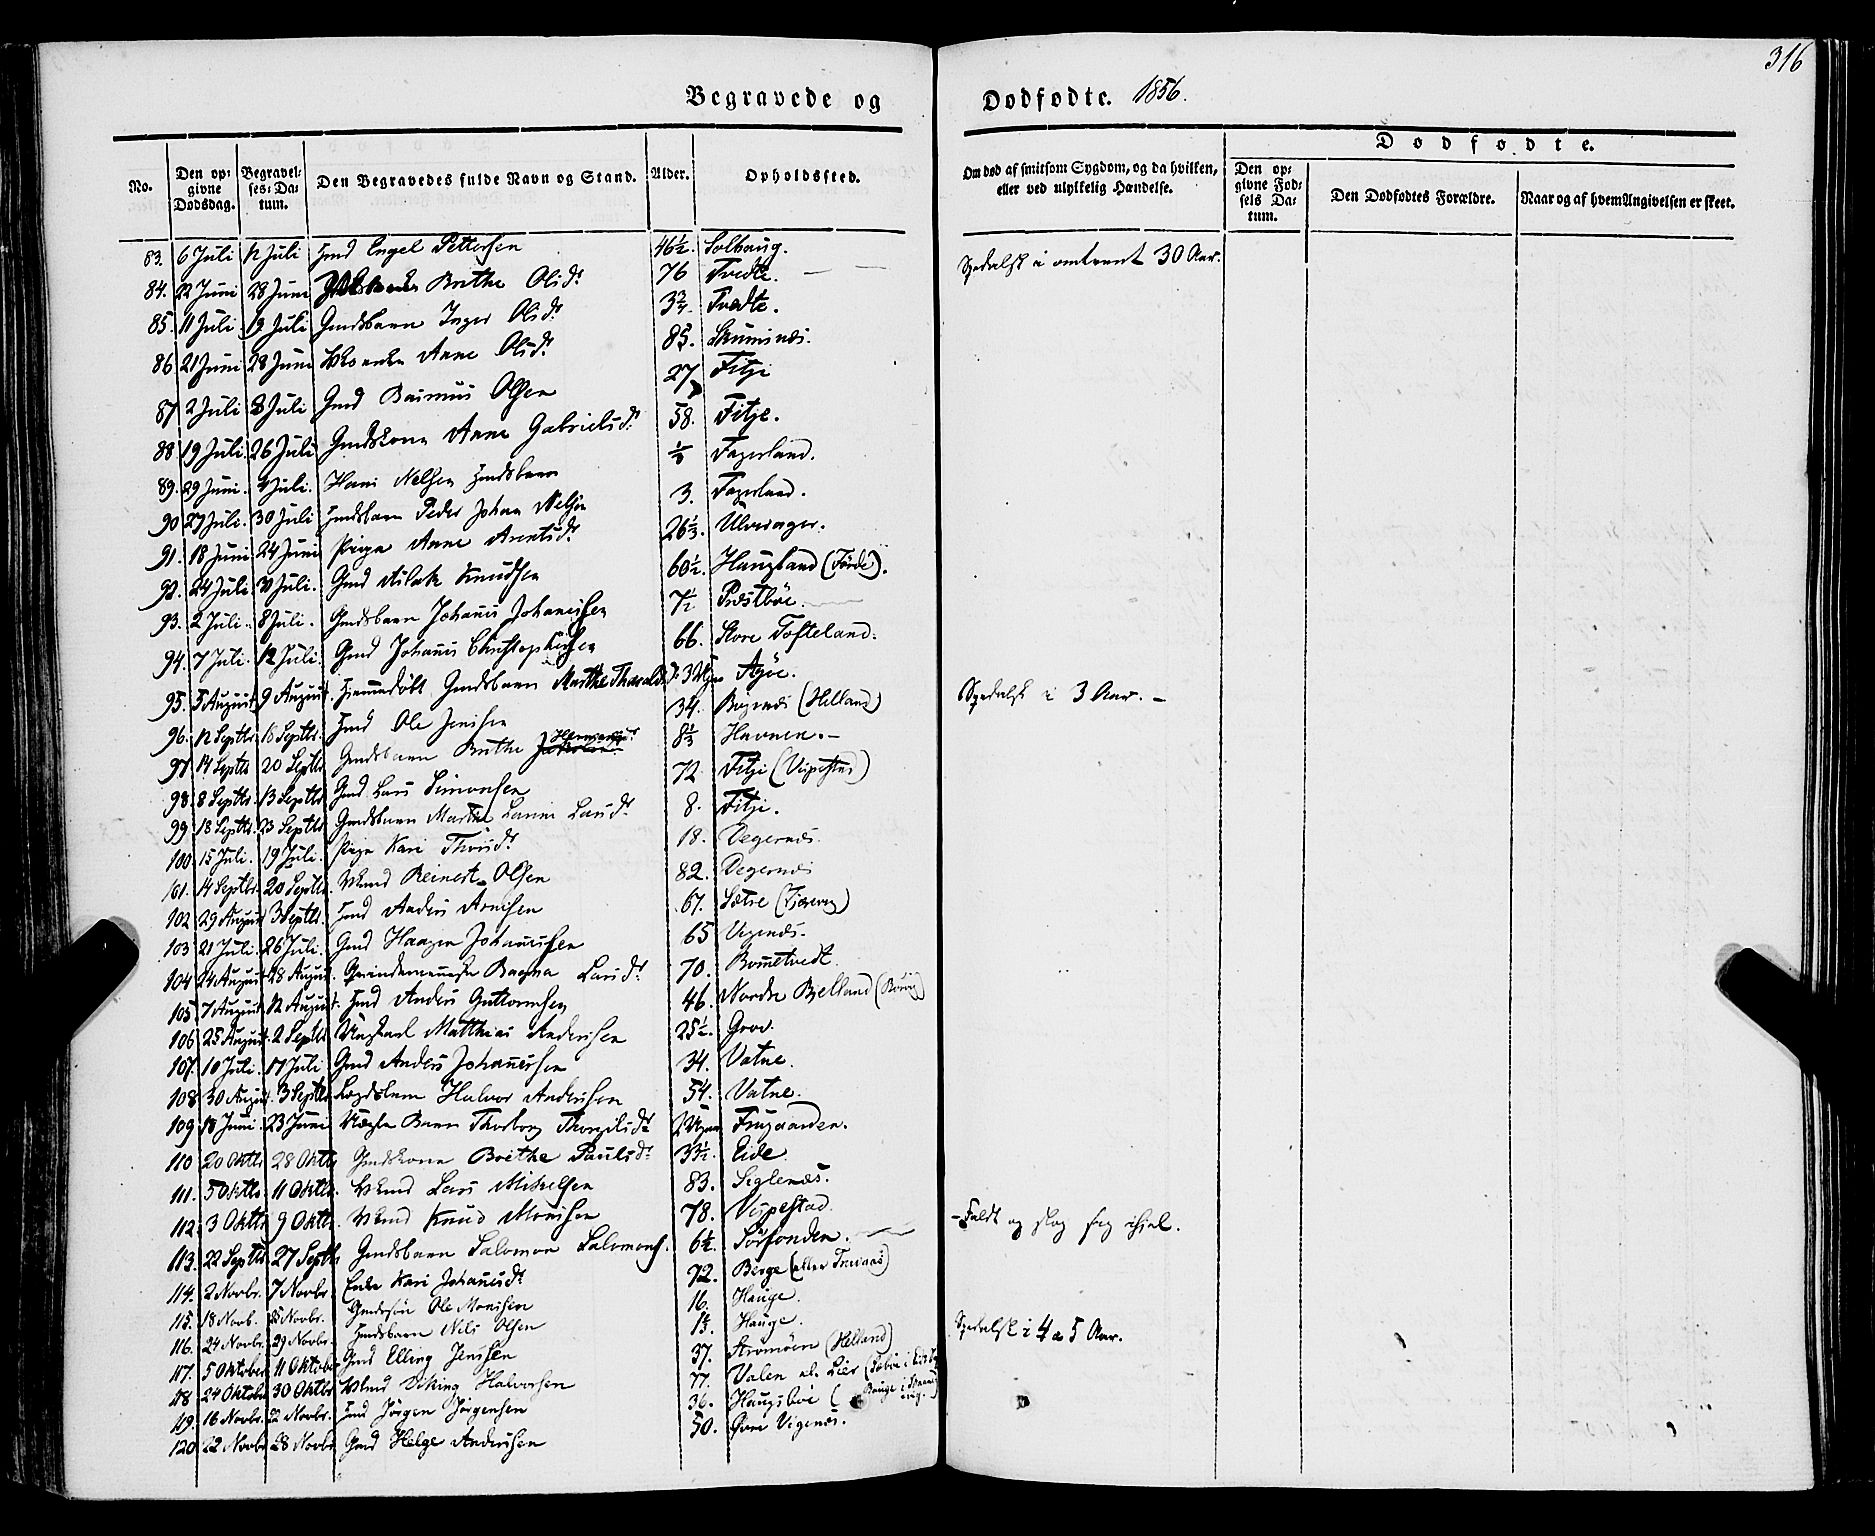 316
Begravede og Dødfødte. 1856.
Dødfødte.
No. | Den opgivne Dødsdag. | Begravelses-Datum. | Den Begravedes fulde Navn og Stand. | Alder. | Opholdssted. | Om død af smitsom Sygdom, og da hvilken, eller ved ulykkelig Hændelse. | Den opgivne Fødsels Datum. | Den Dødfødtes Forældre. | Naar og af hvem Angivelsen er skeet.
83. 6 Juli 12 Juli Hmd Engel Pettersen 46½. Solbaug. Spedalsk i omtrent 30 Aar.
84. 22 Juni 28 Juni Brithe Olsdr 76 Tvedte.
85. 11 Juli 19 Juli Gmdsbarn Inger Olsdr 3¾. Tvedte.
86 21 Juni 28 Juni Anne Olsdr 85.
87 2 Juli 8 Juli Gmd Rasmus Olsen 27 Fitje
88 19 Juli 26 Juli Gmdskone Anne Gabrielsdr 58. Fitje.
89. 29 Juni. Juli. Hans Nelsen Hmdsbarn Fagerland.
90 27 Juli. 30 Juli Hmdsbarn Peder Johan Nelsen 3. Fagerland.
91. 18 Juni 24 Juni Pige Anne Arentsdr 26⅓. Ulverager.
92. 24 Juli Juli. Gmd Aslak Knudsen 60½. Haugland (Førde).
93. 2 Juli. 8 Juli. Gmdsbarn Johannes Johannessen 7½ Præstbøe.
94. 7 Juli. 12 Juli. Gmd Johannes Christophersen 66. Store Tofteland.
95. 5 August 9 August. Hjemmedøbt Gmdsbarn Marthe Tharaldsdr 3 Uger Agøe.
96. 12 Septbr. 18 Septbr. Hmd Ole Jensen 34. (Helland) Spedalsk i 3 Aar.
97 14 Septbr 20 Septbr Gmdsbarn Brithe 8⅓ Havnen.
98. 8 Septbr. 13 Septbr. Gmd Lars Simonsen 72 Fitje (Vispestad)
99. 18 Septbr. 23 Septbr. Gmdsbarn Marthe Larsdr 8. Fitje.
100. 15 Juli. 19 Juli. Pige Kari Thorsdr 18. Vegernæs.
101. 14 Septbr. 20 Septbr. Reinert Olsen 82. Vegernæs
102 29 August 3 Septbr. Hmd Anders Arnesen 67. Sætre
103 21 Juli. 26 Juli. Gmd Haagen Johannessen 65 Vigenæs.
104 24 August 28 August. Qvindemenneske Ragna Larsdr 70. Rometvedt.
105 7 August 12 August. Hmd Anders Guttormsen 46. Nordre Bjelland
106 25 August. 2 Septbr Ungkarl Matthias Andersen 25½. Grov.
107. 10 Juli. 17 Juli Gmd Anders Johannessen 34. Vatne.
108 30 August. 3 Septbr Lægdslem Halvor Andersen 54. Vatne.
109 18 Juni. 23 Juni Uægte Barn Thorborg Thorgilsdr 2 Uger Frugaarden.
110 20 Oktbr 28 Oktbr Gmdskone Brithe Paulsdr 33½. Eide
111. 5 Oktbr. 11 Oktbr. Lars Mikkelsen 83. Siglenæs.
112. 3 Oktbr 9 Oktbr. Knud Monsen 78. Vispestad.
113. 22 Septbr. 27 Septbr Gmdsbarn Salomon Salomons. 6½. Sørfonden. Faldt og slog sig ihjel.
114. 2 Novbr. 7 Novbr. Enke Kari Johannesdr 72. Berge
115. 18 Novb. 25 Novbr. Gmdssøn Ole Monsen 16. Hauge.
116. 24 Novbr. 29 Novbr. Hmdsbarn Nils Olsen Hauge.
117. 5 Oktober 11 Oktober Gmd Elling Jensen 37. Strømøen (Helland) Spedalsk i 4 a 5 Aar.
118 24 Oktbr 30 Oktbr Viking Halvorsen 77. Valen
119. 16 Novbr. 22 Novbr. Hmd Jørgen Jørgensen 36. Haugsbøe
120. 22 Novbr 28 Novbr Gmd Helge Andersen 50. Øvre Vigenæs.